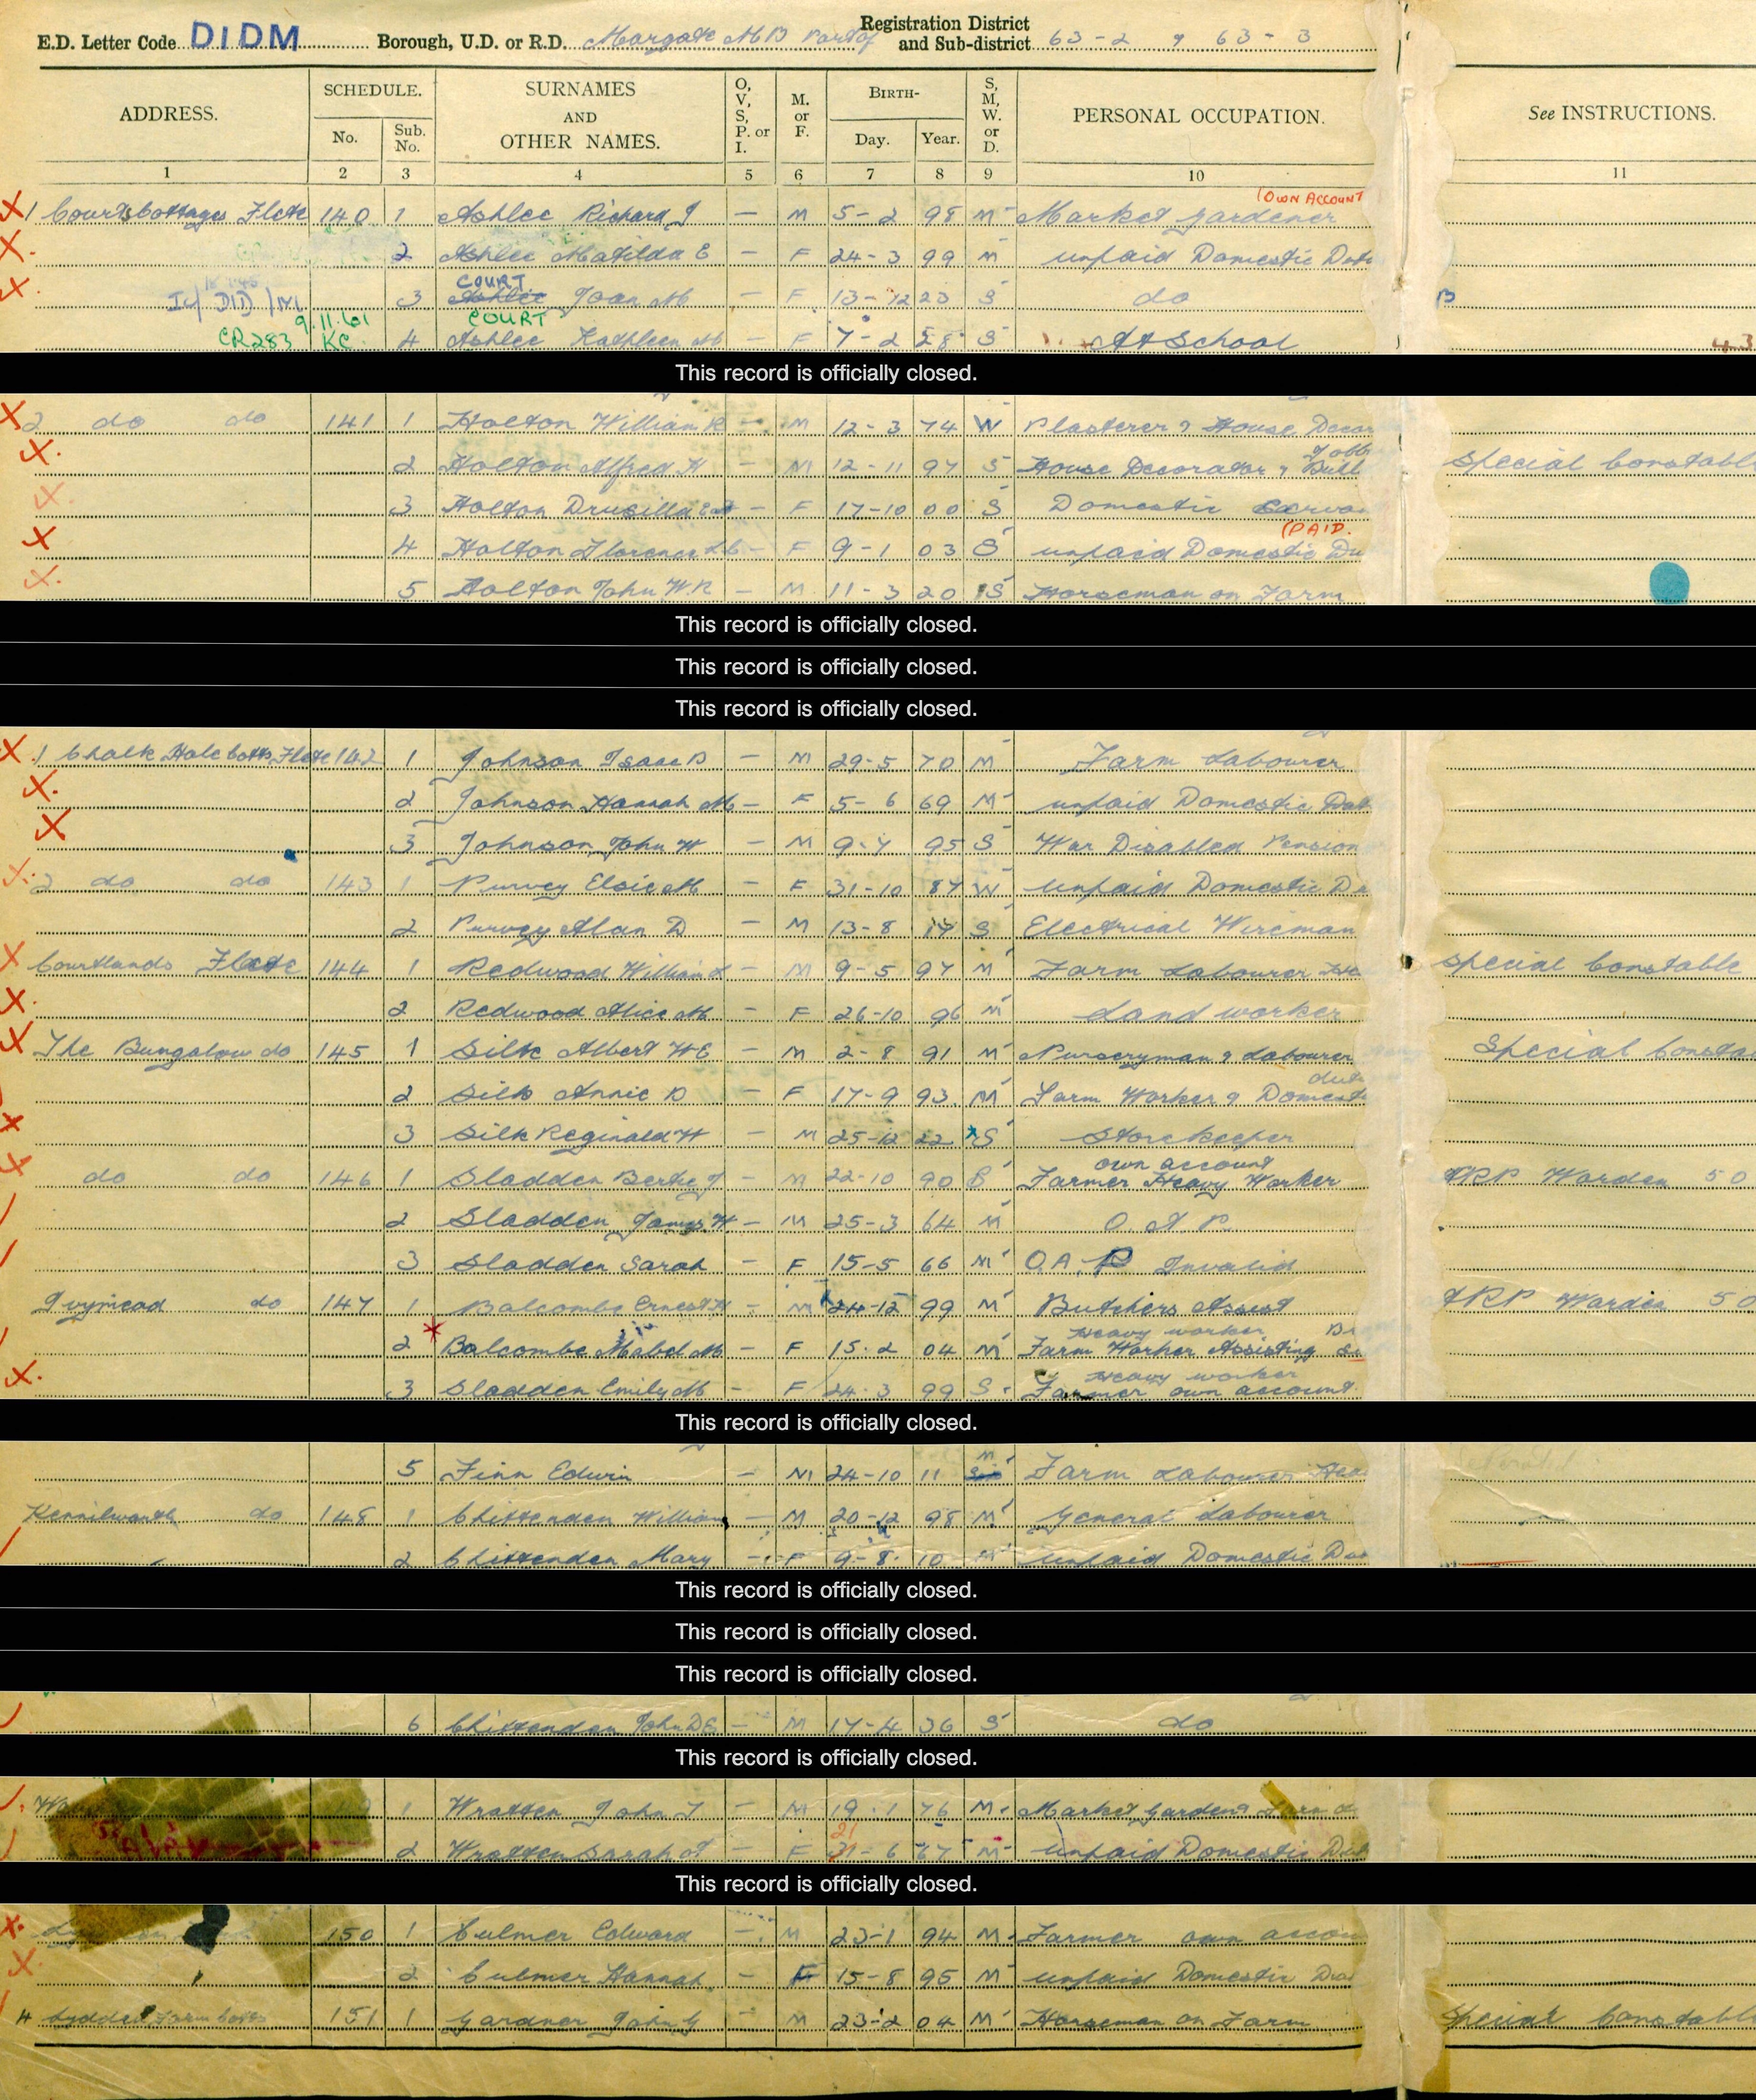 E.D. Letter Code DIDM Borough, U.D. or R.D. Margate MB Part of Registration District and Sub-district 63-2 & 63-3
ADDRESS. SCHEDULE. No. Sub. No. SURNAMES AND OTHER NAMES. O, V, S, P. or I. M. or F. BIRTH- Day. Year. S, M, W. or D. PERSONAL OCCUPATION. See INSTRUCTIONS.
1 2 3 4 5 6 7 8 9 10 11
(OWN ACCOUNT
1 Courts Cottages Flete 140 1 Ashlee Richard J — M 5-2 98 M Market Gardener
2 Ashlee Matilda E — F 24-3 99 M unpaid Domestic Dut
COURT
3 Ashlee Joan M — F 13-12 23 S do
COURT
9.11.61
CR283 KC 4 Ashlee Kathleen M — F 7-2 28 S At School
This record is officially closed.
2 do do 141 1 Holton William R — M 12-3 74 W Plasterer & House Decor
2 Holton Alfred H — M 12-11 97 S House Decorator & Buil Special Constabl
3 Holton Drusilla — F 17-10 00 S Domestic Serva
(PAID.
4 Holton Florence — F 9-1 03 S unpaid Domestic Du
5 Holton John W.R — M 11-3 20 S Horseman on Farm
This record is officially closed.
This record is officially closed.
This record is officially closed.
1 Chalk Hole Cotts Flete 142 1 Johnson Isaac B — M 29-5 70 M Farm Labourer
2 Johnson Hannah M — F 5-6 69 M unpaid Domestic Dut
3 Johnson John H — M 9-7 95 S War Disabled Pension
2 do do 143 1 Purvey Elsie M — F 31-10 87 W Unpaid Domestic Du
2 Purvey Alan D — M 13-8 17 S Electrical Wireman
Courtlands Flete 144 1 Redwood William L — M 9-5 97 M Farm Labourer Hea Special Constable
2 Redwood Alice M — F 26-10 96 M Land worker
The Bungalow do 145 1 Silk Albert H E — M 2-8 91 M Nurseryman & Labourer Special Consta
dut
2 Silk Annie D — F 17-9 93 M Farm Worker & Domest
3 Silk Reginald H — M 25-12 22 S Storekeeper
own account
do do 146 1 Sladden Bertie J — M 22-10 90 S Farmer Heavy Worker ARP Warden 50
2 Sladden James H — M 25-3 64 M O A P
3 Sladden Sarah — F 15-5 66 M O.A.P Invalid
Ivymead do 147 1 Balcombe Ernest H — M 24-12 99 M Butchers Assist ARP Warden 50
Heavy worker
2 Balcombe Mabel M — F 15-2 04 M Farm Worker Assisting
Heavy worker
3 Sladden Emily M — F 24-3 99 S Farmer own account
This record is officially closed.
5 Finn Edwin — M 24-10 11 M Farm Labourer Hea
Kennilworth do 148 1 Chittenden William — M 20-12 98 M General Labourer
2 Chittenden Mary — F 9-8 10 M Unpaid Domestic Dut
This record is officially closed.
This record is officially closed.
This record is officially closed.
6 Chittenden John D E — M 17-4 36 S do
This record is officially closed.
1 Wratten John T — M 19-1 76 M Market Gardener
21
2 Wratten Sarah A — F 31-6 67 M unpaid Domestic Dut
This record is officially closed.
150 1 Culmer Edward — M 23-1 94 M Farmer own accou
2 Culmer Hannah — F 15-8 95 M unpaid Domestic Du
4 Lydden Farm Cotts 151 1 Gardner John G — M 23-2 04 M Horseman on Farm Special Constabl